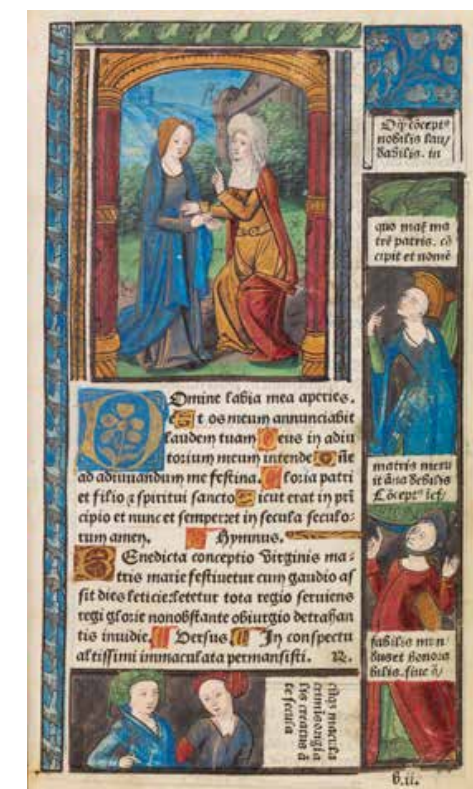 Omine labia mea aperies.
et os meum annunciabit
laudem tuam Deus in adiu
torium meum intende Dñe
ad adiuuandum me festina. Gloria patri
et filio ⁊ spiritui sancto Sicut erat in prī
cipio et nunc et semper:et in secula seculo:
rum amen. Hymnus.
BEnedicta conceptio Virginis ma:
tris marie festiuetur cum gaudio as
sit dies leticie:letetur tota regio seruiens
regi glorie nonobstante obiurgio detrahan
tis inuidie. Versus. In conspectu
altissimi immaculata permansisti. R.
cōcept
nobilis lau/
dabilis. in
quo maē ma
trē patris. cō
cipit et nomē
matris meru
it āna debilis
Cōcept
fabilis mun
duset honora
bilis. siue
macula
lis creatus ā
te secula
b.ii.